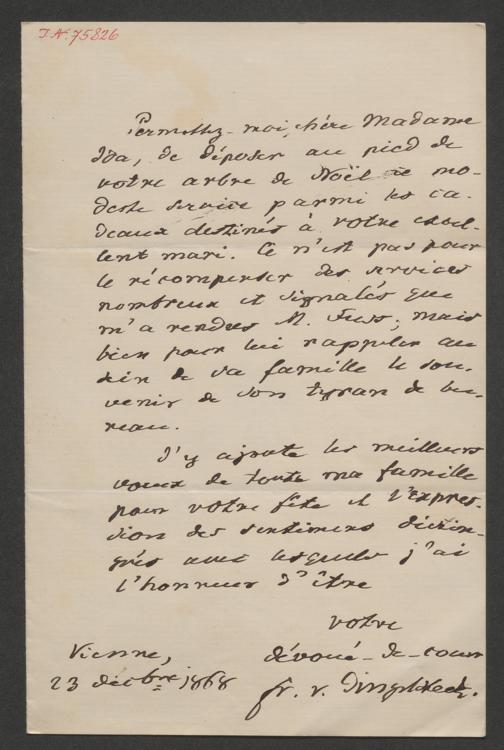 I.N. 75826
Permettez-moi, chère Madame
Ida, de déposer au pied de
votre arbre de Noël ce mo-
deste service parmi les ca-
deaux destinés à votre excel-
lent mari. Ce n'est pas pour
le récompenser des services
nombreux et signalés que
m'a rendus M. ; mais
bien pour lui rappeler au
sein de sa famille le sou-
venir de son tyran de bu-
reau.
J'y ajoute les meilleurs
voeux de toute ma famille
pour votre fête et l'expres-
sion des sentimens distin-
gués avec lesquels j'ai
l'honneur d'être
votre
dévoué-de-coeur
Vienne,
23 décbre 1868
fr. v. Dingelstedt.